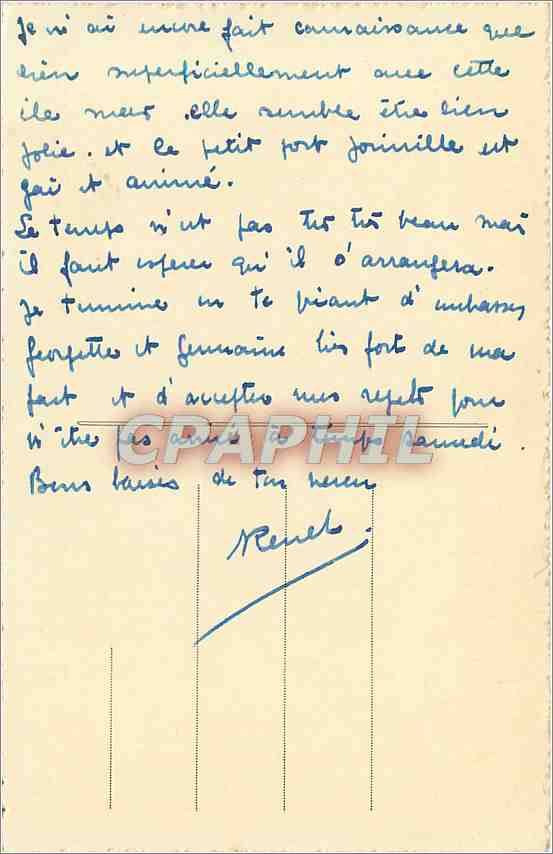 Je n'ai encore fait connaissance que
bien superficiellement avec cette
île mais elle semble être bien
jolie. et le petit port Joinville est
gai et animé.
Le temps n'est pas très très beau mais
il faut espérer qu'il s'arrangera.
Je termine en te priant d'embrasser
Georgette et Germaine très fort de ma
part et d'accepter mes regrets pour
n'être pas arrivé à temps samedi.
CPAPHIL
Bons baisers de ton neveu